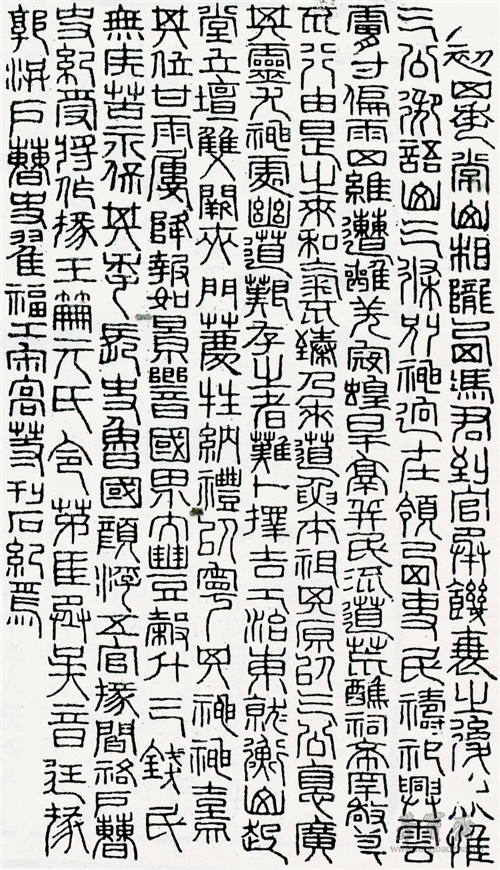 初四年常山相隴西馮君到官承饑衰之後惟
三公御語山三條別神迥在領西吏民禱祀興雲
膚寸偏雨四維遭離羌寇蝗旱鬲并民流道荒醮祠希罕敬奠
不行由是之來和氣不臻乃來道要本祖其原以三公德廣
其靈尤神處幽道艱存之者難卜擇吉土治東就衡山起
堂立壇雙闕夾門薦牲納禮以寧其神神熹
其位甘雨屢降報如景響國界大豐穀斗三錢民
無疾苦永保其年長史魯國顏浮五官掾閻祐戶曹
史紀受將作掾王笧元氏令茅匡丞吳音廷掾
郭洪戶曹史翟福工宋高等刊石紀焉